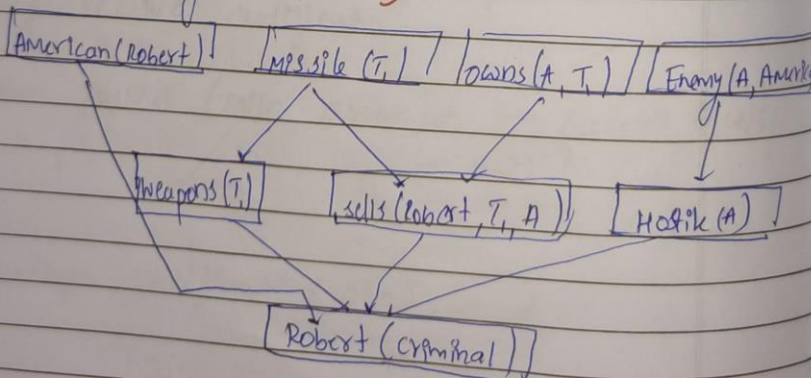 American (Robert) Missile (T₁) Owns (A, T₁) Enemy (A, Americ
weapons (T₁) sells (Robert, T₁, A) Hostile (A)
Robert (Criminal)